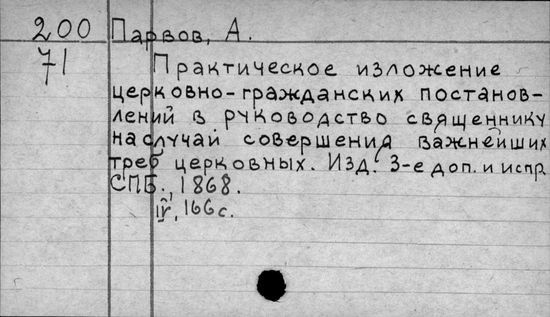 200 Парвов, А.
71 Практическое изложение
церковно-гражданских постанов-
лений в руководство священнику
на случай совершения важнейших
треб церковных. Изд. 3-е доп. и испр.
СПБ., 1868.
IV, 166 с.